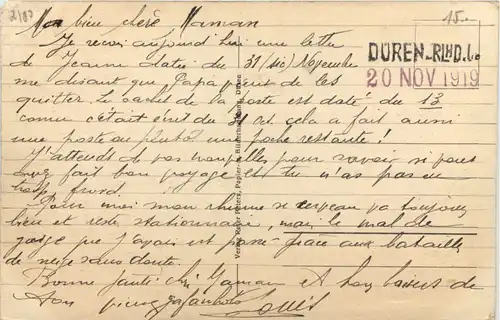 2/03
15.-
Ma bien chère Maman
DÜREN-RLHD. b.
20 NOV 1919
Je reçois aujourd'hui une lettre
de Jeanne datée du 31 (sic) Novembre
me disant que Papa vient de les
quitter. Le cachet de la poste est daté du 13
comme c'était écrit du 31 cela a fait aussi
une poste ou plutôt une poche restante!
J'attends de vos nouvelles pour savoir si vous
avez fait bon voyage et tu n'as pas eu
trop froid.
Pour moi mon rhume de cerveau va toujours
bien et reste stationnaire, mais le mal de
gorge que j'avais est passé grâce aux batailles
de neige sans doute.
Bonne santé chère Maman et bons baisers de
ton vieux
Louis